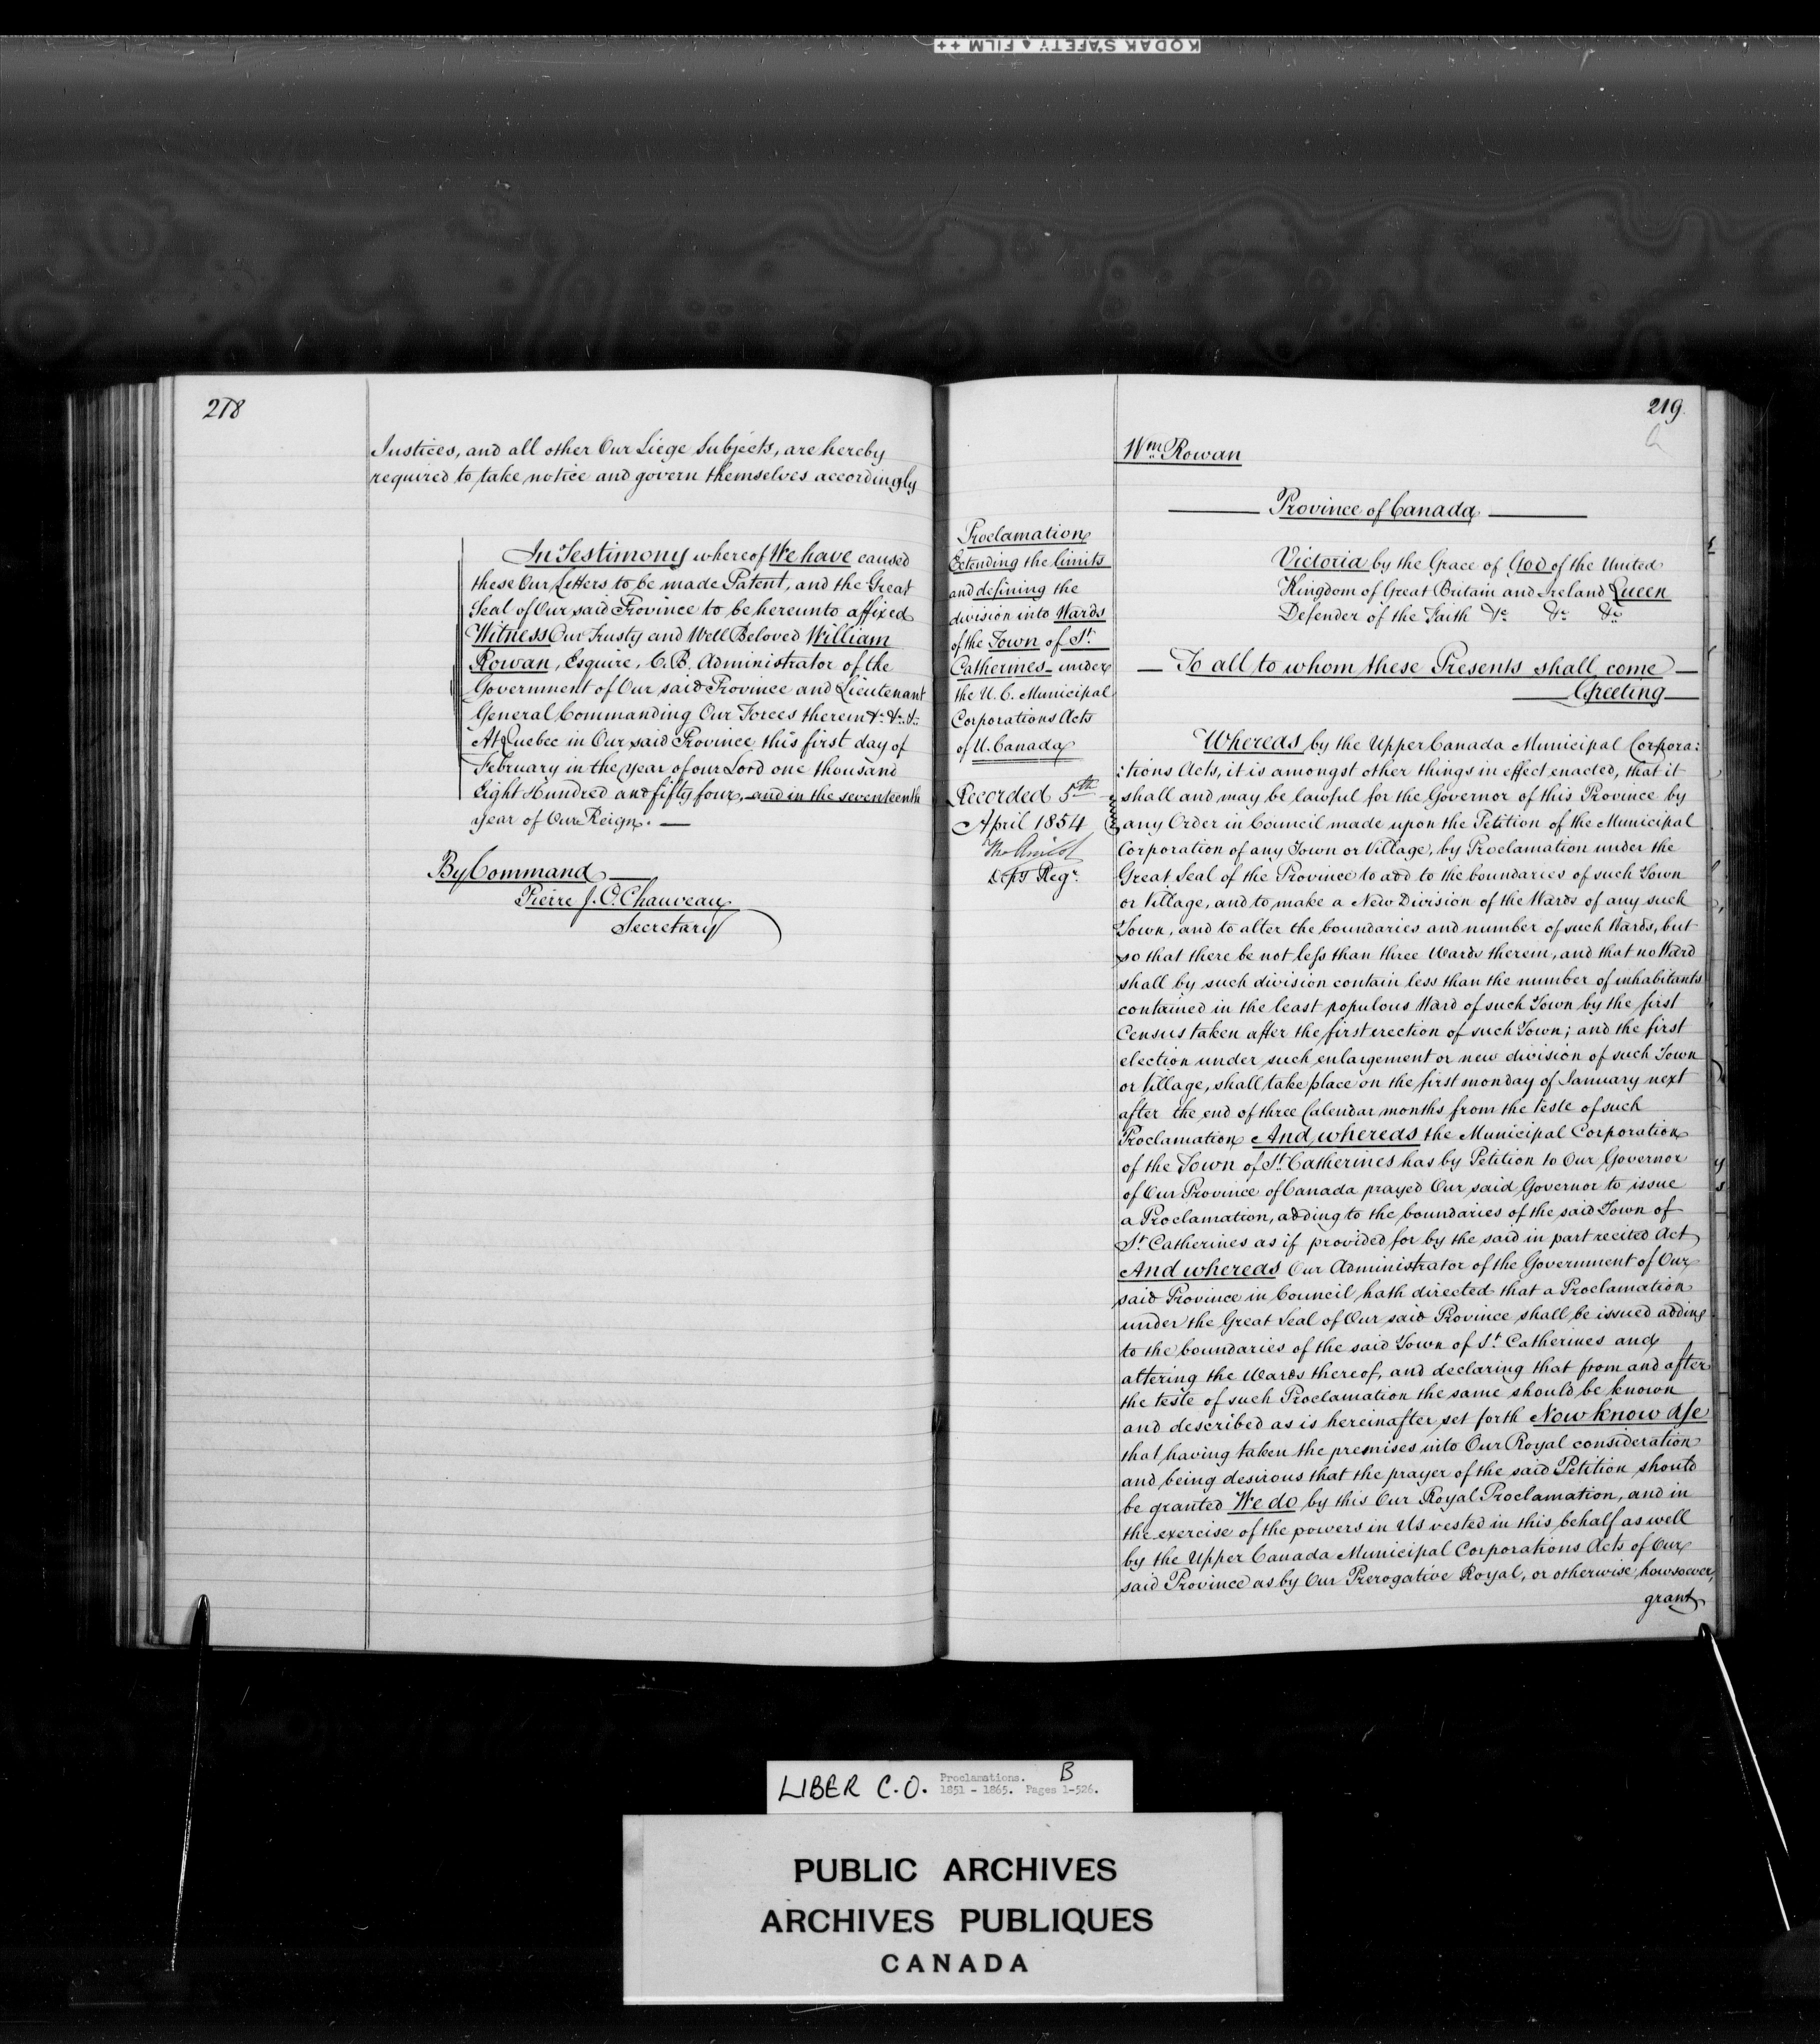 KODAK SAFETY ▲ FILM ++
218
Justices, and all other Our Liege Subjects, are hereby
required to take notice and govern themselves accordingly
In Testimony whereof We have caused
these Our Letters to be made Patent, and the Great
Seal of Our said Province to be hereunto affixed
Witness Our Trusty and Well Beloved William
Rowan, Esquire, C.B. Administrator of the
Government of Our said Province and Lieutenant
General Commanding Our Forces therein &c. &c. &c.
At Quebec in Our said Province this first day of
February in the year of our Lord one thousand
Eight Hundred and fifty four, and in the seventeenth
year of Our Reign. —
By Command —
Pierre J. O. Chauveau
Secretary
219.
Proclamation
Extending the limits
and defining the
division into Wards
of the Town of St.
Catherines under
the U. C. Municipal
Corporations Acts
of U. Canada
Recorded 5th
April 1854
Depy Regr.
Wm Rowan
Province of Canada
Victoria by the Grace of God of the United
Kingdom of Great Britain and Ireland Queen
Defender of the Faith &c &c &c
To all to whom these Presents shall come —
Greeting —
Whereas by the Upper Canada Municipal Corpora:
:tions Acts, it is amongst other things in effect enacted, that it
shall and may be lawful for the Governor of this Province by
any Order in Council made upon the Petition of the Municipal
Corporation of any Town or Village, by Proclamation under the
Great Seal of the Province to add to the boundaries of such Town
or Village, and to make a New Division of the Wards of any such
Town, and to alter the boundaries and number of such Wards, but
so that there be not less than three Wards therein, and that no Ward
shall by such division contain less than the number of inhabitants
contained in the least populous Ward of such Town by the first
Census taken after the first erection of such Town; and the first
election under such enlargement or new division of such Town
or Village, shall take place on the first monday of January next
after the end of three Calendar months from the teste of such
Proclamation And whereas the Municipal Corporation
of the Town of St. Catherines has by Petition to Our Governor
of Our Province of Canada prayed Our said Governor to issue
a Proclamation, adding to the boundaries of the said Town of
St. Catherines as if provided for by the said in part recited Act
And whereas Our Administrator of the Government of Our
said Province in Council hath directed that a Proclamation
under the Great Seal of Our said Province shall be issued adding
to the boundaries of the said Town of St. Catherines and
altering the Wards thereof, and declaring that from and after
the teste of such Proclamation the same should be known
and described as is hereinafter set forth Now know Ye
that having taken the premises into Our Royal consideration
and being desirous that the prayer of the said Petition should
be granted We do by this Our Royal Proclamation, and in
the exercise of the powers in Us vested in this behalf as well
by the Upper Canada Municipal Corporations Acts of Our
said Province as by Our Prerogative Royal, or otherwise howsoever,
grant
LIBER C.O. Proclamations. B
1851 - 1865. Pages 1-526.
PUBLIC ARCHIVES
ARCHIVES PUBLIQUES
CANADA